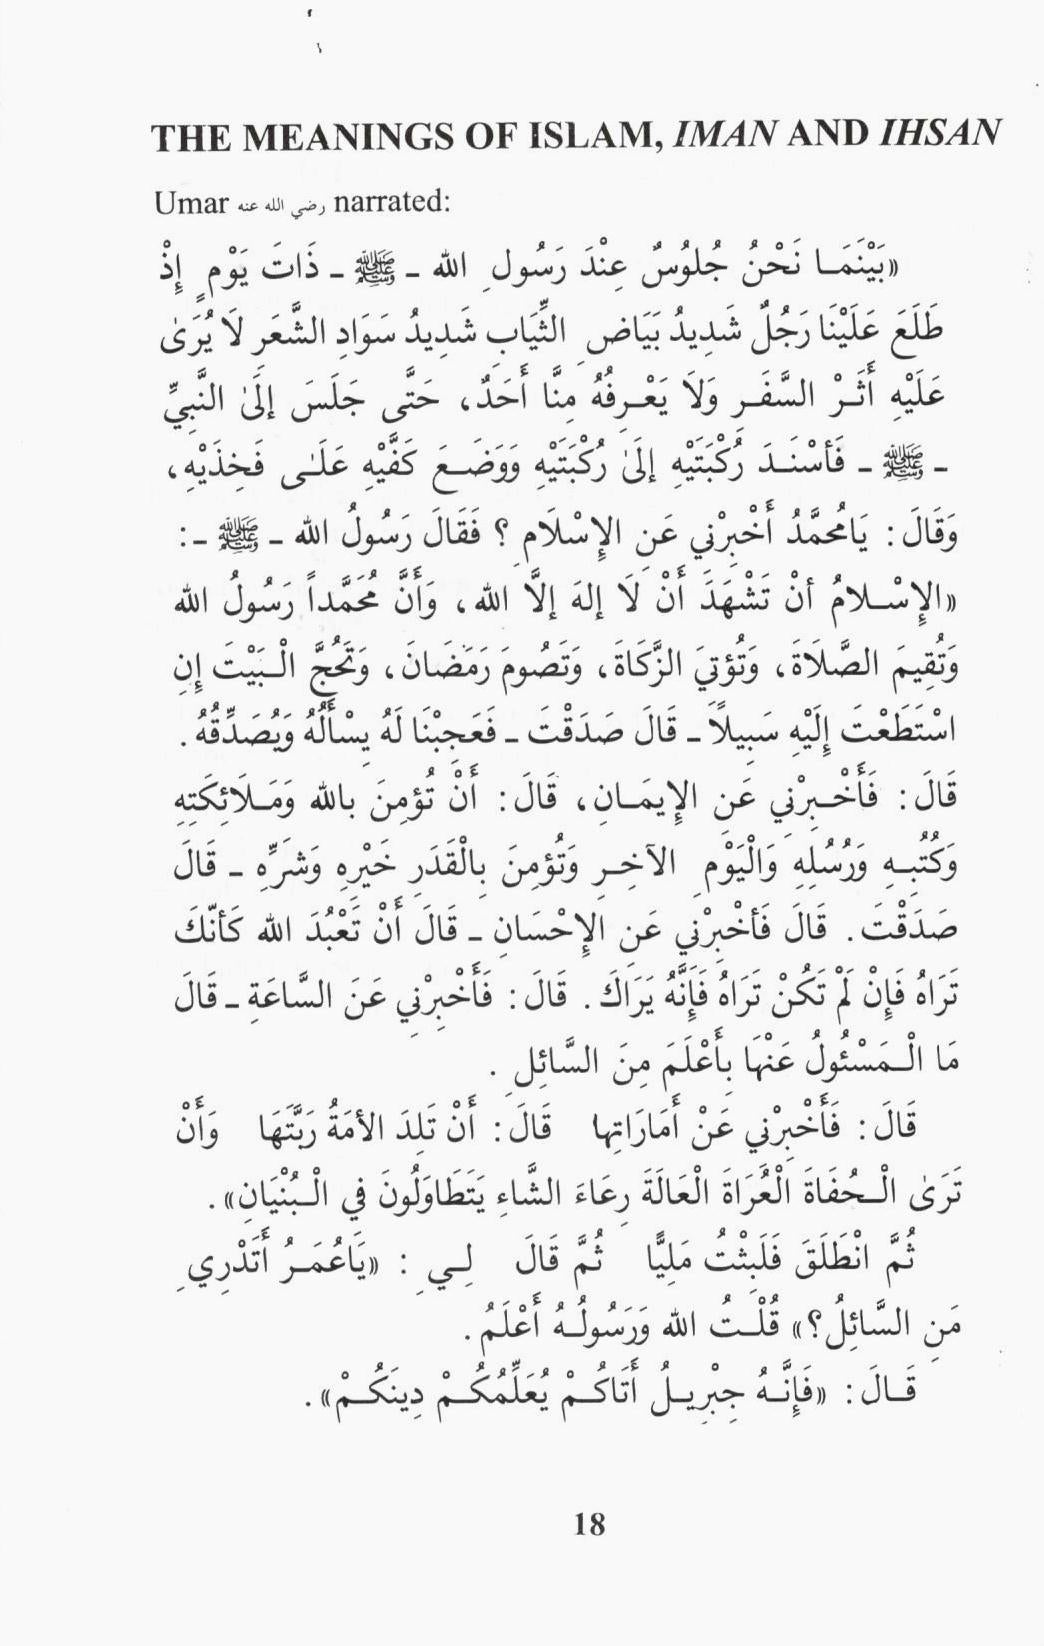 THE MEANINGS OF ISLAM, IMAN AND IHSAN
Umar رضي الله عنه narrated:
«بَيْنَمَـا نَحْنُ جُلوُسٌ عِنْدَ رَسُولِ الله ـ ﷺ ـ ذَاتَ يَوْمٍ إِذْ
طَلَعَ عَلَيْنَا رَجُلٌ شَدِيدُ بَيَاضِ الثِّيَابِ شَدِيدُ سَوَادِ الشَّعَرِ لَا يُرَىٰ
عَلَيْهِ أَثَـرُ السَّفَـرِ وَلَا يَعْـرِفُهُ مِنَّا أَحَدٌ، حَتَّى جَلَسَ إِلَىٰ النَّبِيِّ
ـ ﷺ ـ فَأسْنَـدَ رُكْبَتَيْهِ إلىٰ رُكْبَتَيْهِ وَوَضَـعَ كَفَّيْهِ عَلَـٰى فَخِذَيْهِ،
وَقَالَ : يَامُحمَّدُ أَخْبِرْني عَنِ الإِسْلَامِ ؟ فَقَالَ رَسُولُ الله ـ ﷺ ـ:
«الإِسْـلامُ أنْ تَشْهَدَ أَنْ لَا إلهَ إلاَّ الله، وَأَنَّ مُحَمَّداً رَسُولُ الله
وَتُقِيمَ الصَّلَاةَ، وَتُؤتِيَ الزَّكَاةَ، وَتَصُومَ رَمَضَانَ، وَتَحُجَّ الْـبَيْتَ إِنِ
اسْتَطَعْتَ إِلَيْهِ سَبِيلاً ـ قَالَ صَدَقْتَ ـ فَعَجِبْنَا لَهُ يِسْأَلُهُ وَيُصَدِّقُهُ .
قَالَ : فَأَخْـبِرْني عَنِ الإِيمَـانِ، قَالَ : أَنْ تُؤمِنَ بالله وَمَـلَائِكَتِهِ
وَكُتُبِـهِ وَرُسُلِهِ وَالْيَوْمِ الآخِـرِ وَتُؤمِنَ بِالْقَدَرِ خَيْرِهِ وَشَرِّهِ ـ قَالَ
صَدَقْتَ . قَالَ فَأخْبِرْني عَنِ الإِحْسَانِ ـ قَالَ أَنْ تَعْبُدَ الله كَأنّكَ
تَرَاهُ فَإِنْ لَمْ تَكُنْ تَرَاهُ فَإِنَّهُ يَرَاكَ . قَالَ : فَأَخْبِرْني عَنَ السَّاعَةِ ـ قَالَ
مَا الْـمَسْئُولُ عَنْهَا بِأَعْلَمَ مِنَ السَّائِلِ .
قَالَ : فَأَخْبِرْني عَنْ أَمَارَاتِها قَالَ : أَنْ تَلِدَ الأمَةُ رَبَّتَهَا وَأَنْ
تَرَىٰ الْـحُفَاةَ الْعُرَاةَ الْعَالَةَ رِعَاءَ الشَّاءِ يَتَطَاوَلُونَ في الْـبُنْيَانِ» .
ثُمَّ انْطَلَقَ فَلَبِثْتُ مَلِيًّا ثُمَّ قَالَ لِـي : «يَاعُمَـرُ أَتَدْرِي
مَنِ السَّائِلُ؟» قُلْـتُ الله وَرَسُولُـهُ أَعْلَمُ .
قَـالَ : «فَإِنَّـهُ جِبْرِيـلُ أَتَاكُـمْ يُعَلِّمُكُـمْ دِينَكُـمْ» .
18